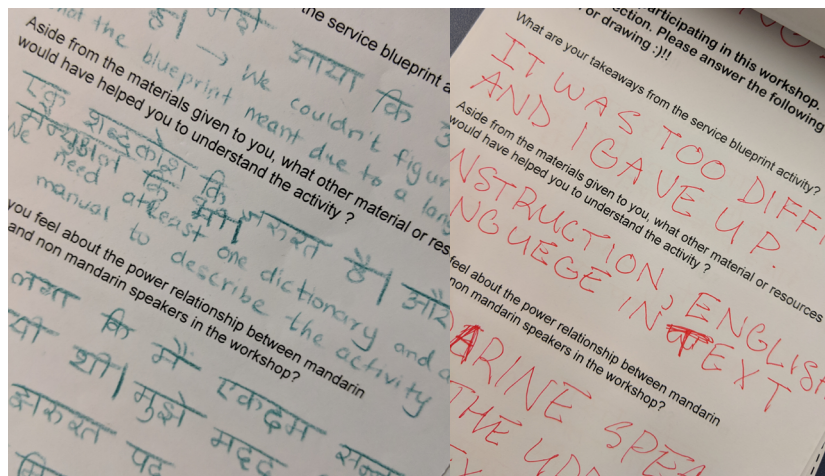 the service blueprint a
है।
आया कि
→ We couldn't figur
the blueprint meant due to a long
Aside from the materials given to you, what other material or res
would have helped you to understand the activity ?
एक शब्दकोश कि
जरुरत है। और
We need atleast one dictionary and a
manual to describe the activity
you feel about the power relationship between mandarin
and non mandarin speakers in the workshop?
कि मैं एकदम
थी। मुझे मदद
articipating in this workshop.
ction. Please answer the following
or drawing :)!!
What are your takeaways from the service blueprint activity?
IT WAS TOO DIFF
AND I GAVE UP.
Aside from the materials given to you, what other material or resources
would have helped you to understand the activity ?
NSTRUCTION, ENGLISH
NGUEGE IN TEXT
feel about the power relationship between mandarin
non mandarin speakers in the workshop?
ARINE SPEA
THE UPP